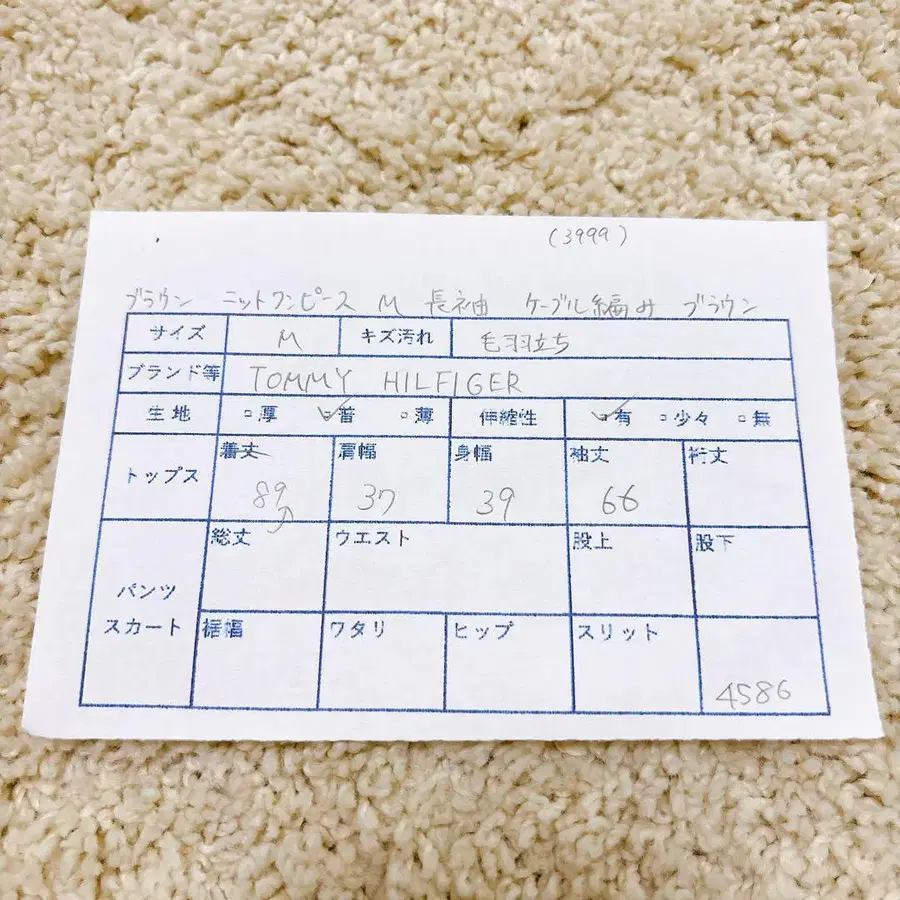 (3999)
ブラウン ニットワンピース M 長袖 ケーブル編み ブラウン
サイズ M キズ汚れ 毛羽立ち
ブランド等 TOMMY HILFIGER
生地 □厚 □普 □薄 伸縮性 □有 □少々 □無
トップス 着丈 肩幅 身幅 袖丈 裄丈
89 37 39 66
パンツ スカート
総丈 ウエスト 股上 股下
裾幅 ワタリ ヒップ スリット
4586